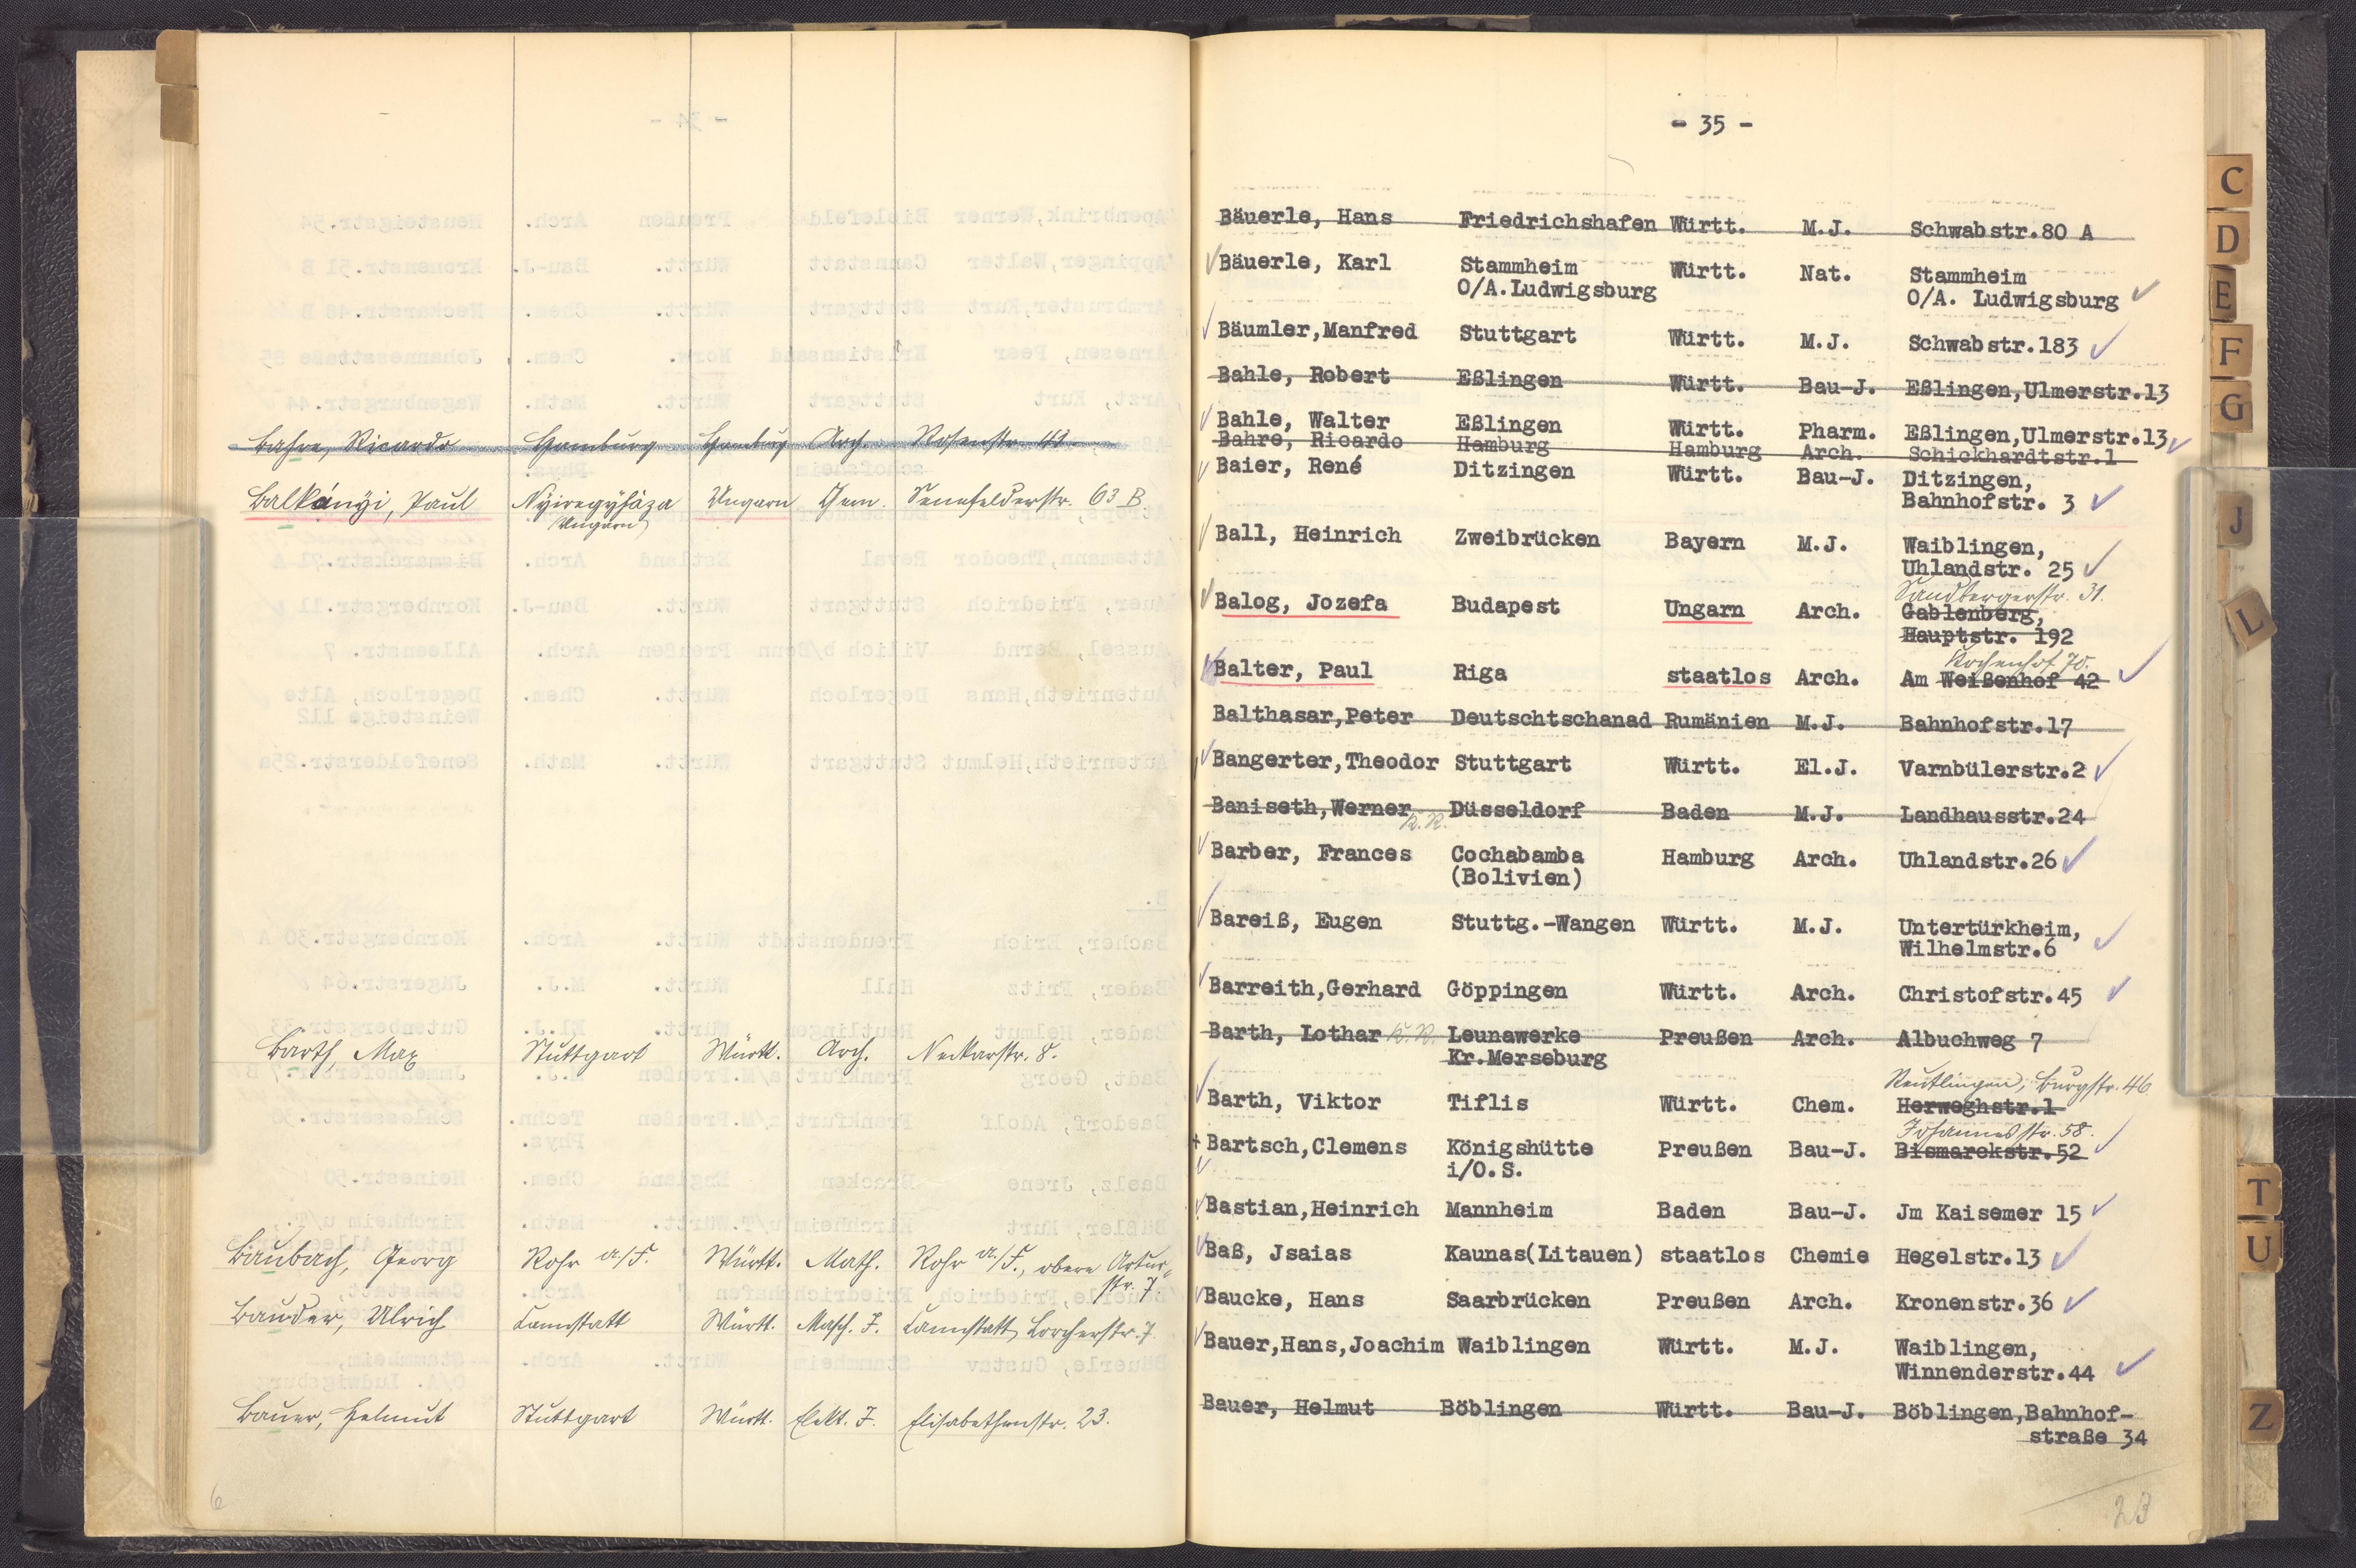 Bahre, Ricardo Hamburg Hamburg Arch. Rosenstr. 43
Balkányi, Paul Nyiregyháza Ungarn Chem. Senefelderstr. 63 B
(Ungarn)
Barth, Max Stuttgart Württ. Arch. Neckarstr. 8.
Baubach, Georg Rohr a./F. Württ. Math. Rohr a/F., obere Artur-
str. 7
Bauder, Ulrich Cannstatt Württ. Masch. J. Cannstatt, Lorcherstr. 7
Bauer, Helmut Stuttgart Württ. Elekt. J. Elisabethenstr. 23.
6
- 35 -
Bäuerle, Hans Friedrichshafen Württ. M.J. Schwabstr.80 A
Bäuerle, Karl Stammheim Württ. Nat. Stammheim
O/A.Ludwigsburg O/A. Ludwigsburg
Bäumler,Manfred Stuttgart Württ. M.J. Schwabstr.183
Bahle, Robert Eßlingen Württ. Bau-J. Eßlingen,Ulmerstr.13
Bahle, Walter Eßlingen Württ. Pharm. Eßlingen,Ulmerstr.13
Bahre, Ricardo Hamburg Hamburg Arch. Schickhardtstr.1
Baier, René Ditzingen Württ. Bau-J. Ditzingen,
Bahnhofstr. 3
Ball, Heinrich Zweibrücken Bayern M.J. Waiblingen,
Uhlandstr. 25
Sandbergerstr. 31.
Balog, Jozefa Budapest Ungarn Arch. Gablenberg,
Hauptstr. 192
Kochenhof 70.
Balter, Paul Riga staatlos Arch. Am Weißenhof 42
Balthasar,Peter Deutschtschanad Rumänien M.J. Bahnhofstr.17
Bangerter,Theodor Stuttgart Württ. El.J. Varnbülerstr.2
Baniseth,Werner Düsseldorf Baden M.J. Landhausstr.24
K.R.
Barber, Frances Cochabamba Hamburg Arch. Uhlandstr.26
(Bolivien)
Bareiß, Eugen Stuttg.-Wangen Württ. M.J. Untertürkheim,
Wilhelmstr.6
Barreith,Gerhard Göppingen Württ. Arch. Christofstr.45
Barth, Lothar K.R. Leunawerke Preußen Arch. Albuchweg 7
Kr.Merseburg
Reutlingen, Burgstr. 46
Barth, Viktor Tiflis Württ. Chem. Herweghstr.1
Johannesstr. 58.
+ Bartsch,Clemens Königshütte Preußen Bau-J. Bismarckstr.52
i/O.S.
Bastian,Heinrich Mannheim Baden Bau-J. Jm Kaisemer 15
Baß, Jsaias Kaunas(Litauen) staatlos Chemie Hegelstr.13
Baucke, Hans Saarbrücken Preußen Arch. Kronenstr.36
Bauer,Hans,Joachim Waiblingen Württ. M.J. Waiblingen,
Winnenderstr.44
Bauer, Helmut Böblingen Württ. Bau-J. Böblingen,Bahnhof-
straße 34
23
C
D
E
F
G
J
L
T
U
Z